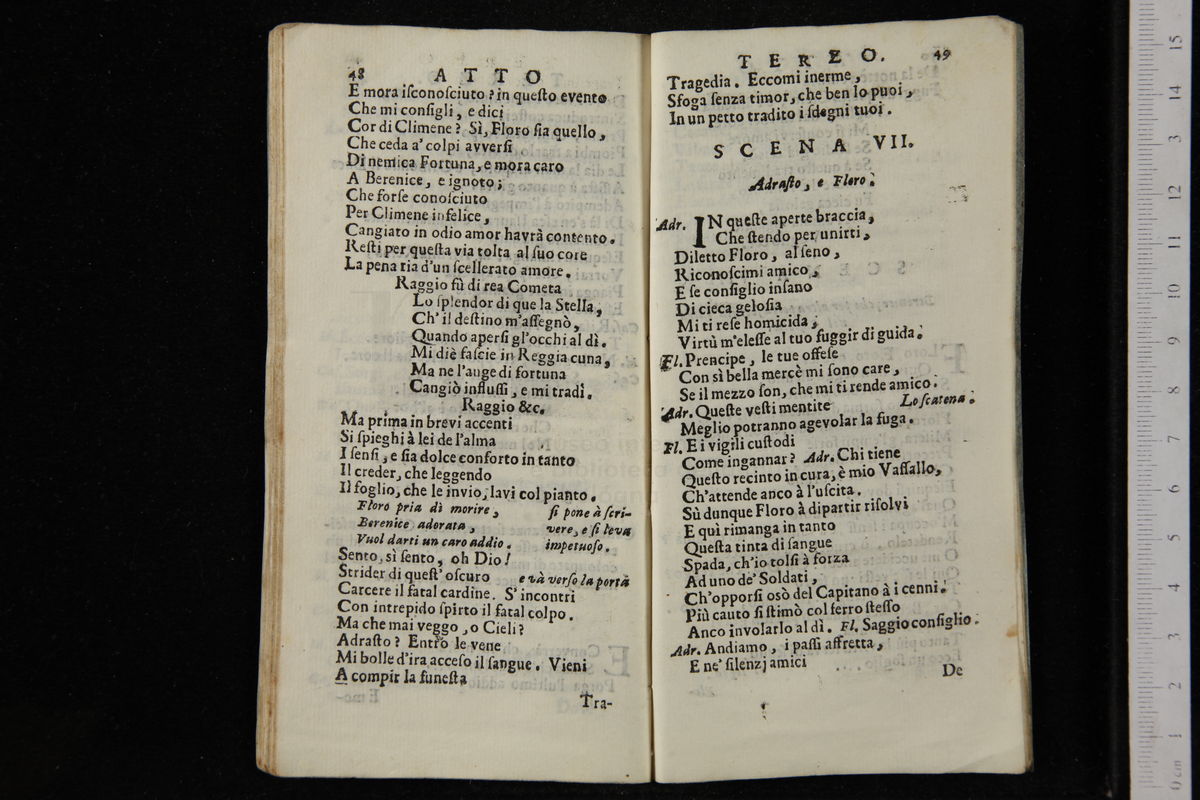 48 ATTO
E mora iſconoſciuto? in queſto evento
Che mi conſigli, e dici
Cor di Climene? Sì, Floro ſia quello,
Che ceda a' colpi avverſi
Di nemica Fortuna, e mora caro
A Berenice, e ignoto;
Che forſe conoſciuto
Per Climene infelice,
Cangiato in odio amor havrà contento.
Reſti per queſta via tolta al ſuo core
La pena ria d'un ſcellerato amore.
Raggio fù di rea Cometa
Lo ſplendor di que la Stella,
Ch' il deſtino m'aſſegnò,
Quando aperſi gl'occhi al dì.
Mi diè faſcie in Reggia cuna,
Ma ne l'auge di fortuna
Cangiò influſſi, e mi tradì.
Raggio &c.
Ma prima in brevi accenti
Si ſpieghi à lei de l'alma
I ſenſi, e ſia dolce conforto in tanto
Il creder, che leggendo
Il foglio, che le invio, lavi col pianto.
Floro pria di morire, ſi pone à ſcri-
Berenice adorata, vere, e ſi leva
Vuol darti un caro addio. impetuoſo.
Sento, sì ſento, oh Dio!
Strider di queſt' oſcuro e và verſo la porta
Carcere il fatal cardine. S' incontri
Con intrepido ſpirto il fatal colpo.
Ma che mai veggo, o Cieli?
Adraſto? Entro le vene
Mi bolle d'ira acceſo il ſangue. Vieni
A compir la funeſta
Tra-
TERZO. 49
Tragedia. Eccomi inerme,
Sfoga ſenza timor, che ben lo puoi,
In un petto tradito i ſdegni tuoi.
SCENA VII.
Adraſto, e Floro.
Adr. IN queſte aperte braccia,
Che ſtendo per unirti,
Diletto Floro, al ſeno,
Riconoſcimi amico,
E ſe conſiglio inſano
Di cieca geloſia
Mi ti reſe homicida,
Virtù m'eleſſe al tuo fuggir di guida.
Fl. Prencipe, le tue offeſe
Con sì bella mercè mi ſono care,
Se il mezzo ſon, che mi ti rende amico.
Adr. Queſte veſti mentite Lo ſcatena.
Meglio potranno agevolar la fuga.
Fl. E i vigili cuſtodi
Come ingannar? Adr. Chi tiene
Queſto recinto in cura, è mio Vaſſallo,
Ch'attende anco à l'uſcita.
Sù dunque Floro à dipartir riſolvi
E quì rimanga in tanto
Queſta tinta di ſangue
Spada, ch'io tolſi à forza
Ad uno de' Soldati,
Ch'opporſi osò del Capitano à i cenni.
Più cauto ſi ſtimò col ferro ſteſſo
Anco involarlo al dì. Fl. Saggio conſiglio.
Adr. Andiamo, i paſſi affretta,
E ne' ſilenzj amici
De